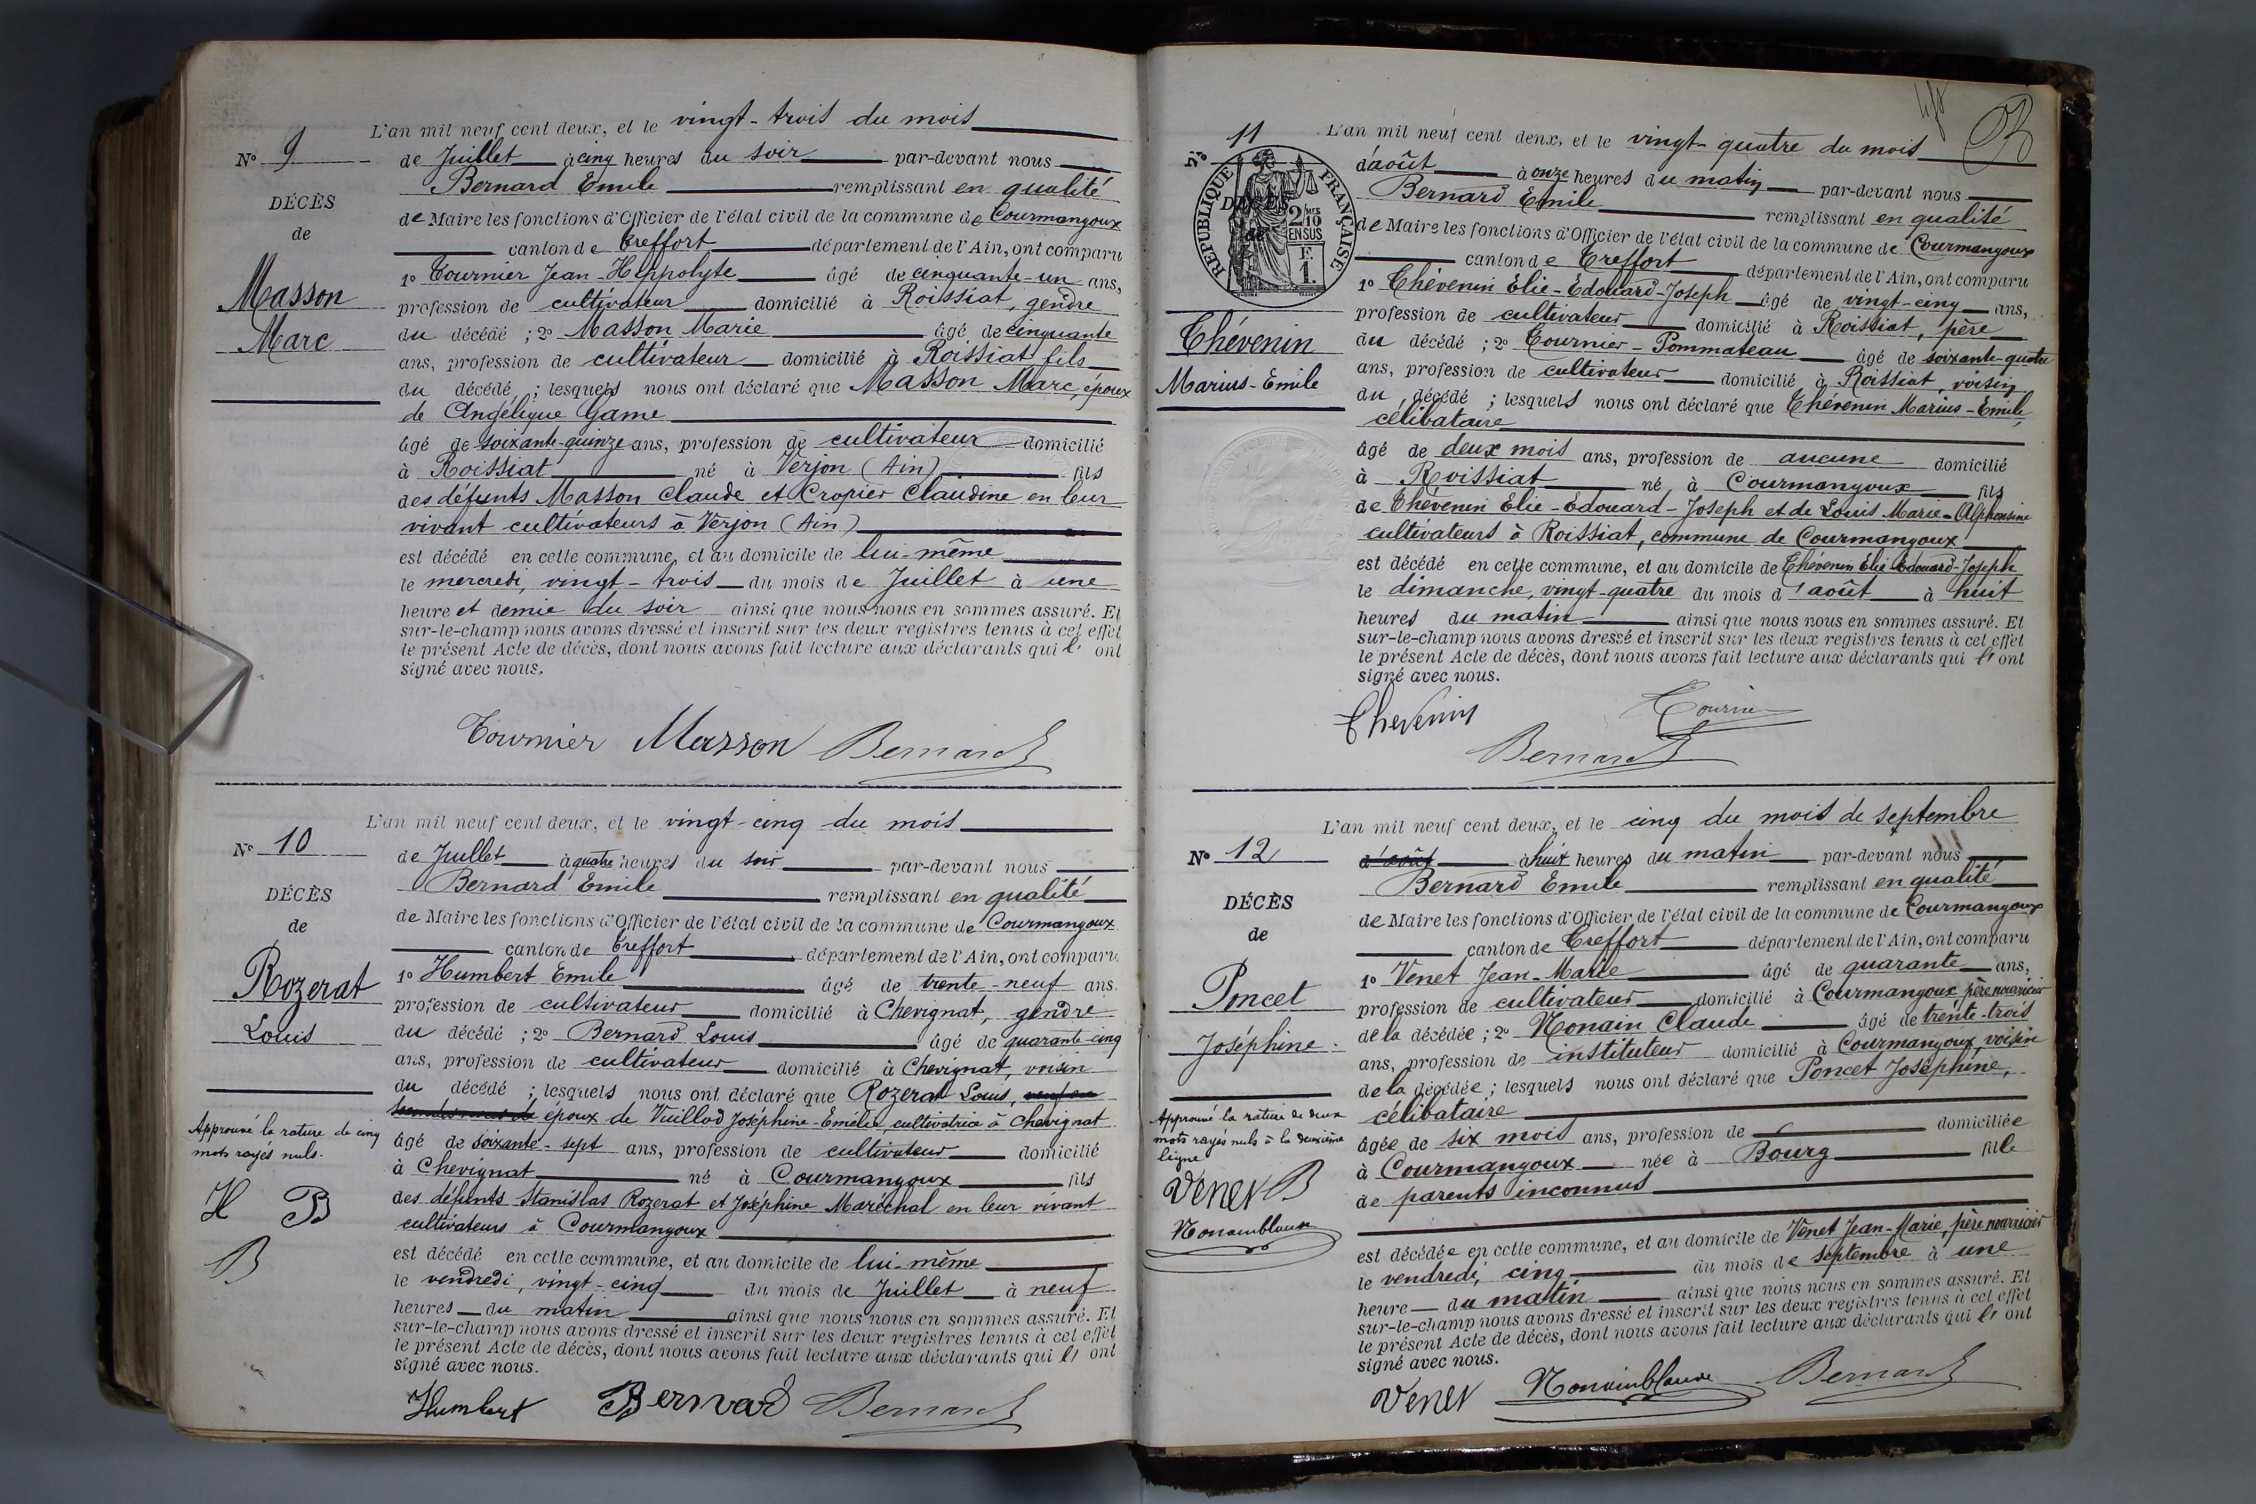 L'an mil neuf cent deux, et le vingt-trois du mois
N° 9
de Juillet à cinq heures du soir par-devant nous
Bernard Emile remplissant en qualité
DÉCÈS
de Maire les fonctions d'Officier de l'état civil de la commune de Courmangoux
de
canton de Treffort département de l'Ain, ont comparu
1° Tournier Jean-Hippolyte âgé de cinquante-un ans,
Masson
profession de cultivateur domicilié à Roissiat, gendre
Marc
du décédé ; 2° Masson Marie âgé de cinquante
ans, profession de cultivateur domicilié à Roissiat fils
du décédé ; lesquels nous ont déclaré que Masson Marc, époux
de Angélique Game
âgé de soixante-quinze ans, profession de cultivateur domicilié
à Roissiat né à Verjon (Ain) fils
des défunts Masson Claude et Cropier Claudine en leur
vivant cultivateurs à Verjon (Ain)
est décédé en cette commune, et au domicile de lui-même
le mercredi, vingt-trois du mois de Juillet à une
heure et demie du soir ainsi que nous nous en sommes assuré. Et
sur-le-champ nous avons dressé et inscrit sur les deux registres tenus à cet effet
le présent Acte de décès, dont nous avons fait lecture aux déclarants qui l' ont
signé avec nous.
Tournier Masson Bernard
L'an mil neuf cent deux, et le vingt-cinq du mois
N° 10
de Juillet à quatre heures du soir par-devant nous
Bernard Emile remplissant en qualité
DÉCÈS
de Maire les fonctions d'Officier de l'état civil de la commune de Courmangoux
de
canton de Treffort département de l'Ain, ont comparu
1° Humbert Emile âgé de trente-neuf ans
Rozerat
profession de cultivateur domicilié à Chevignat, gendre
Louis
du décédé ; 2° Bernard Louis âgé de quarante-cinq
ans, profession de cultivateur domicilié à Chevignat, voisin
du décédé ; lesquels nous ont déclaré que Rozerat Louis,
époux de Vuillod Joséphine-Emélie, cultivatrice à Chevignat
Approuvé la rature de cinq
mots rayés nuls.
âgé de soixante-sept ans, profession de cultivateur domicilié
à Chevignat né à Courmangoux fils
des défunts Stanislas Rozerat et Joséphine Maréchal en leur vivant
H B
cultivateurs à Courmangoux
B
est décédé en cette commune, et au domicile de lui-même
le vendredi, vingt-cinq du mois de Juillet à neuf
heures du matin ainsi que nous nous en sommes assuré. Et
sur-le-champ nous avons dressé et inscrit sur les deux registres tenus à cet effet
le présent Acte de décès, dont nous avons fait lecture aux déclarants qui l' ont
signé avec nous.
Humbert Bernard Bernard
B
L'an mil neuf cent deux, et le vingt-quatre du mois
N° 11
d'août à onze heures du matin par-devant nous
Bernard Emile remplissant en qualité
RÉPUBLIQUE FRANÇAISE
2/10
EN SUS
F.
1.
DÉCÈS
de
de Maire les fonctions d'Officier de l'état civil de la commune de Courmangoux
canton de Treffort département de l'Ain, ont comparu
1° Thévenin Elie-Edouard-Joseph âgé de vingt-cinq ans,
profession de cultivateur domicilié à Roissiat, père
Thévenin
du décédé ; 2° Tournier-Pommateau âgé de soixante-quatre
Marius-Emile
ans, profession de cultivateur domicilié à Roissiat, voisin
du décédé ; lesquels nous ont déclaré que Thévenin Marius-Emile,
célibataire
âgé de deux mois ans, profession de aucune domicilié
à Roissiat né à Courmangoux fils
de Thévenin Elie-Edouard-Joseph et de Louis Marie-Alphonsine
cultivateurs à Roissiat, commune de Courmangoux
est décédé en cette commune, et au domicile de Thévenin Elie Edouard-Joseph
le dimanche, vingt-quatre du mois d'août à huit
heures du matin ainsi que nous nous en sommes assuré. Et
sur-le-champ nous avons dressé et inscrit sur les deux registres tenus à cet effet
le présent Acte de décès, dont nous avons fait lecture aux déclarants qui l' ont
signé avec nous.
Thevenin Tournier
Bernard
L'an mil neuf cent deux, et le cinq du mois de septembre
N° 12
d'août à huit heures du matin par-devant nous
Bernard Emile remplissant en qualité
DÉCÈS
de Maire les fonctions d'Officier de l'état civil de la commune de Courmangoux
de
canton de Treffort département de l'Ain, ont comparu
1° Venet Jean-Marie âgé de quarante ans,
Poncet
profession de cultivateur domicilié à Courmangoux, père nourricier
Joséphine
de la décédée ; 2° Nonain Claude âgé de trente-trois
ans, profession de instituteur domicilié à Courmangoux, voisin
de la décédée ; lesquels nous ont déclaré que Poncet Joséphine,
célibataire
Approuvé la rature de deux
mots rayés nuls à la deuxième
ligne
âgée de six mois ans, profession de domiciliée
à Courmangoux née à Bourg fille
Venet B
de parents inconnus
Nonainblaude
est décédée en cette commune, et au domicile de Venet Jean-Marie, père nourricier
le vendredi, cinq du mois de septembre à une
heure du matin ainsi que nous nous en sommes assuré. Et
sur-le-champ nous avons dressé et inscrit sur les deux registres tenus à cet effet
le présent Acte de décès, dont nous avons fait lecture aux déclarants qui l' ont
signé avec nous.
Venet Nonainblaude Bernard